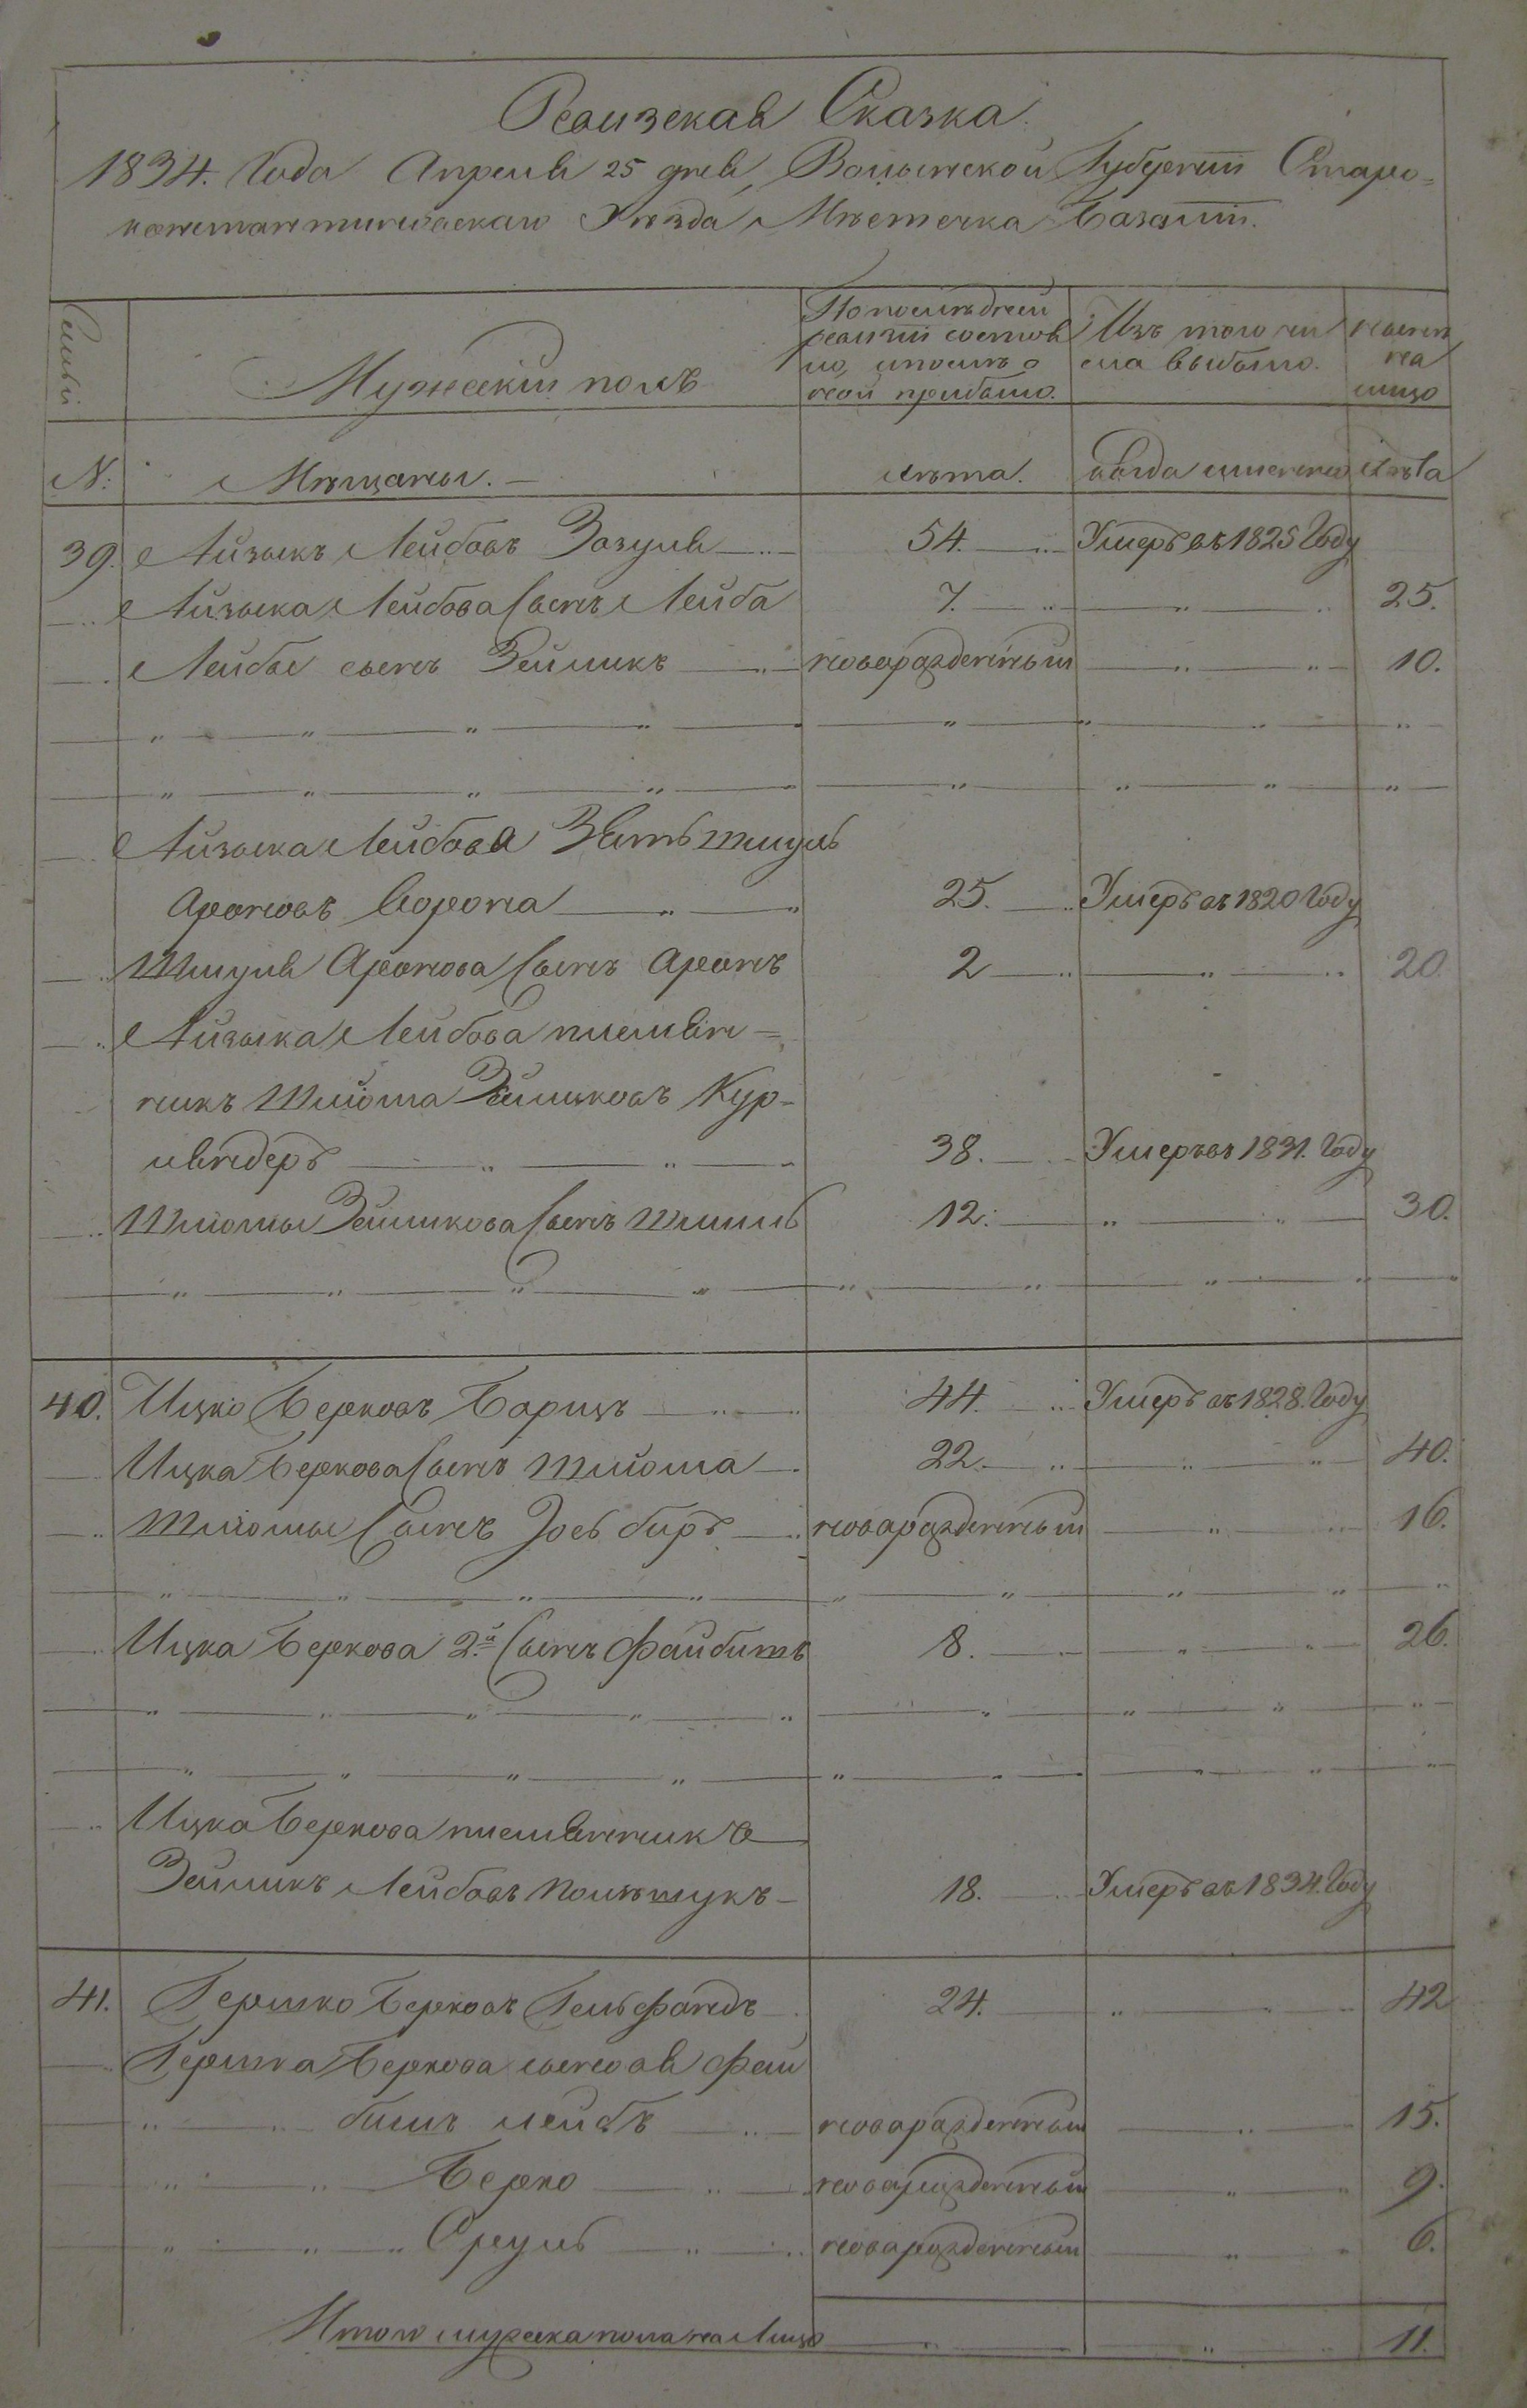 Ревизская Сказка.
1834. Года Апреля 25 дня, Волынской Губернiи Старо=
константиновскаго Уѣзда, Мѣстечка Базалiи.
Семьи
Мужескiй полъ
По послѣдней
ревизiи состоя
ло, и послѣ о
ной прибыло.
Изъ того чи
сла выбыло.
Нынѣ
на
лицо
N:
Мѣщаны.
лѣта.
когда именно
Лѣта
39. Айзыкъ Лейбовъ Зозуля 54. Умеръ въ 1825 Году
Айзыка Лейбова Сынъ Лейба 7. 25.
Лейбы сынъ Зейликъ новорожденный 10.
Айзыка Лейбова Зять Шмуль
Ароновъ Ворона 25. Умеръ въ 1820 Году
Шмуля Аронова Сынъ Аронъ 2 20.
Айзыка Лейбова племян=
никъ Шлиома Зейликовъ Кур-
ляндеръ 38. Умеръ въ 1831. Году
Шлиомы Зейликова Сынъ Шмиль 12. 30.
40. Ицко Берковъ Борицъ 44. Умеръ въ 1828. Году
Ицка Беркова Сынъ Шлиома 22. 40.
Шлиомы Сынъ Зось биръ новорожденный 16.
Ицка Беркова 2.й Сынъ Файбишъ 8. 26.
Ицка Беркова племянникъ
Зейликъ Лейбовъ Полѣщукъ 18. Умеръ въ 1834. Году
41. Гершко Берковъ Гельфандъ 24. 42
Гершка Беркова сыновья Фай
бишъ лейбъ новорожденный 15.
Берко новорожденный 9.
Сруль новорожденный 6.
Итого мужеска пола на Лицо 11.